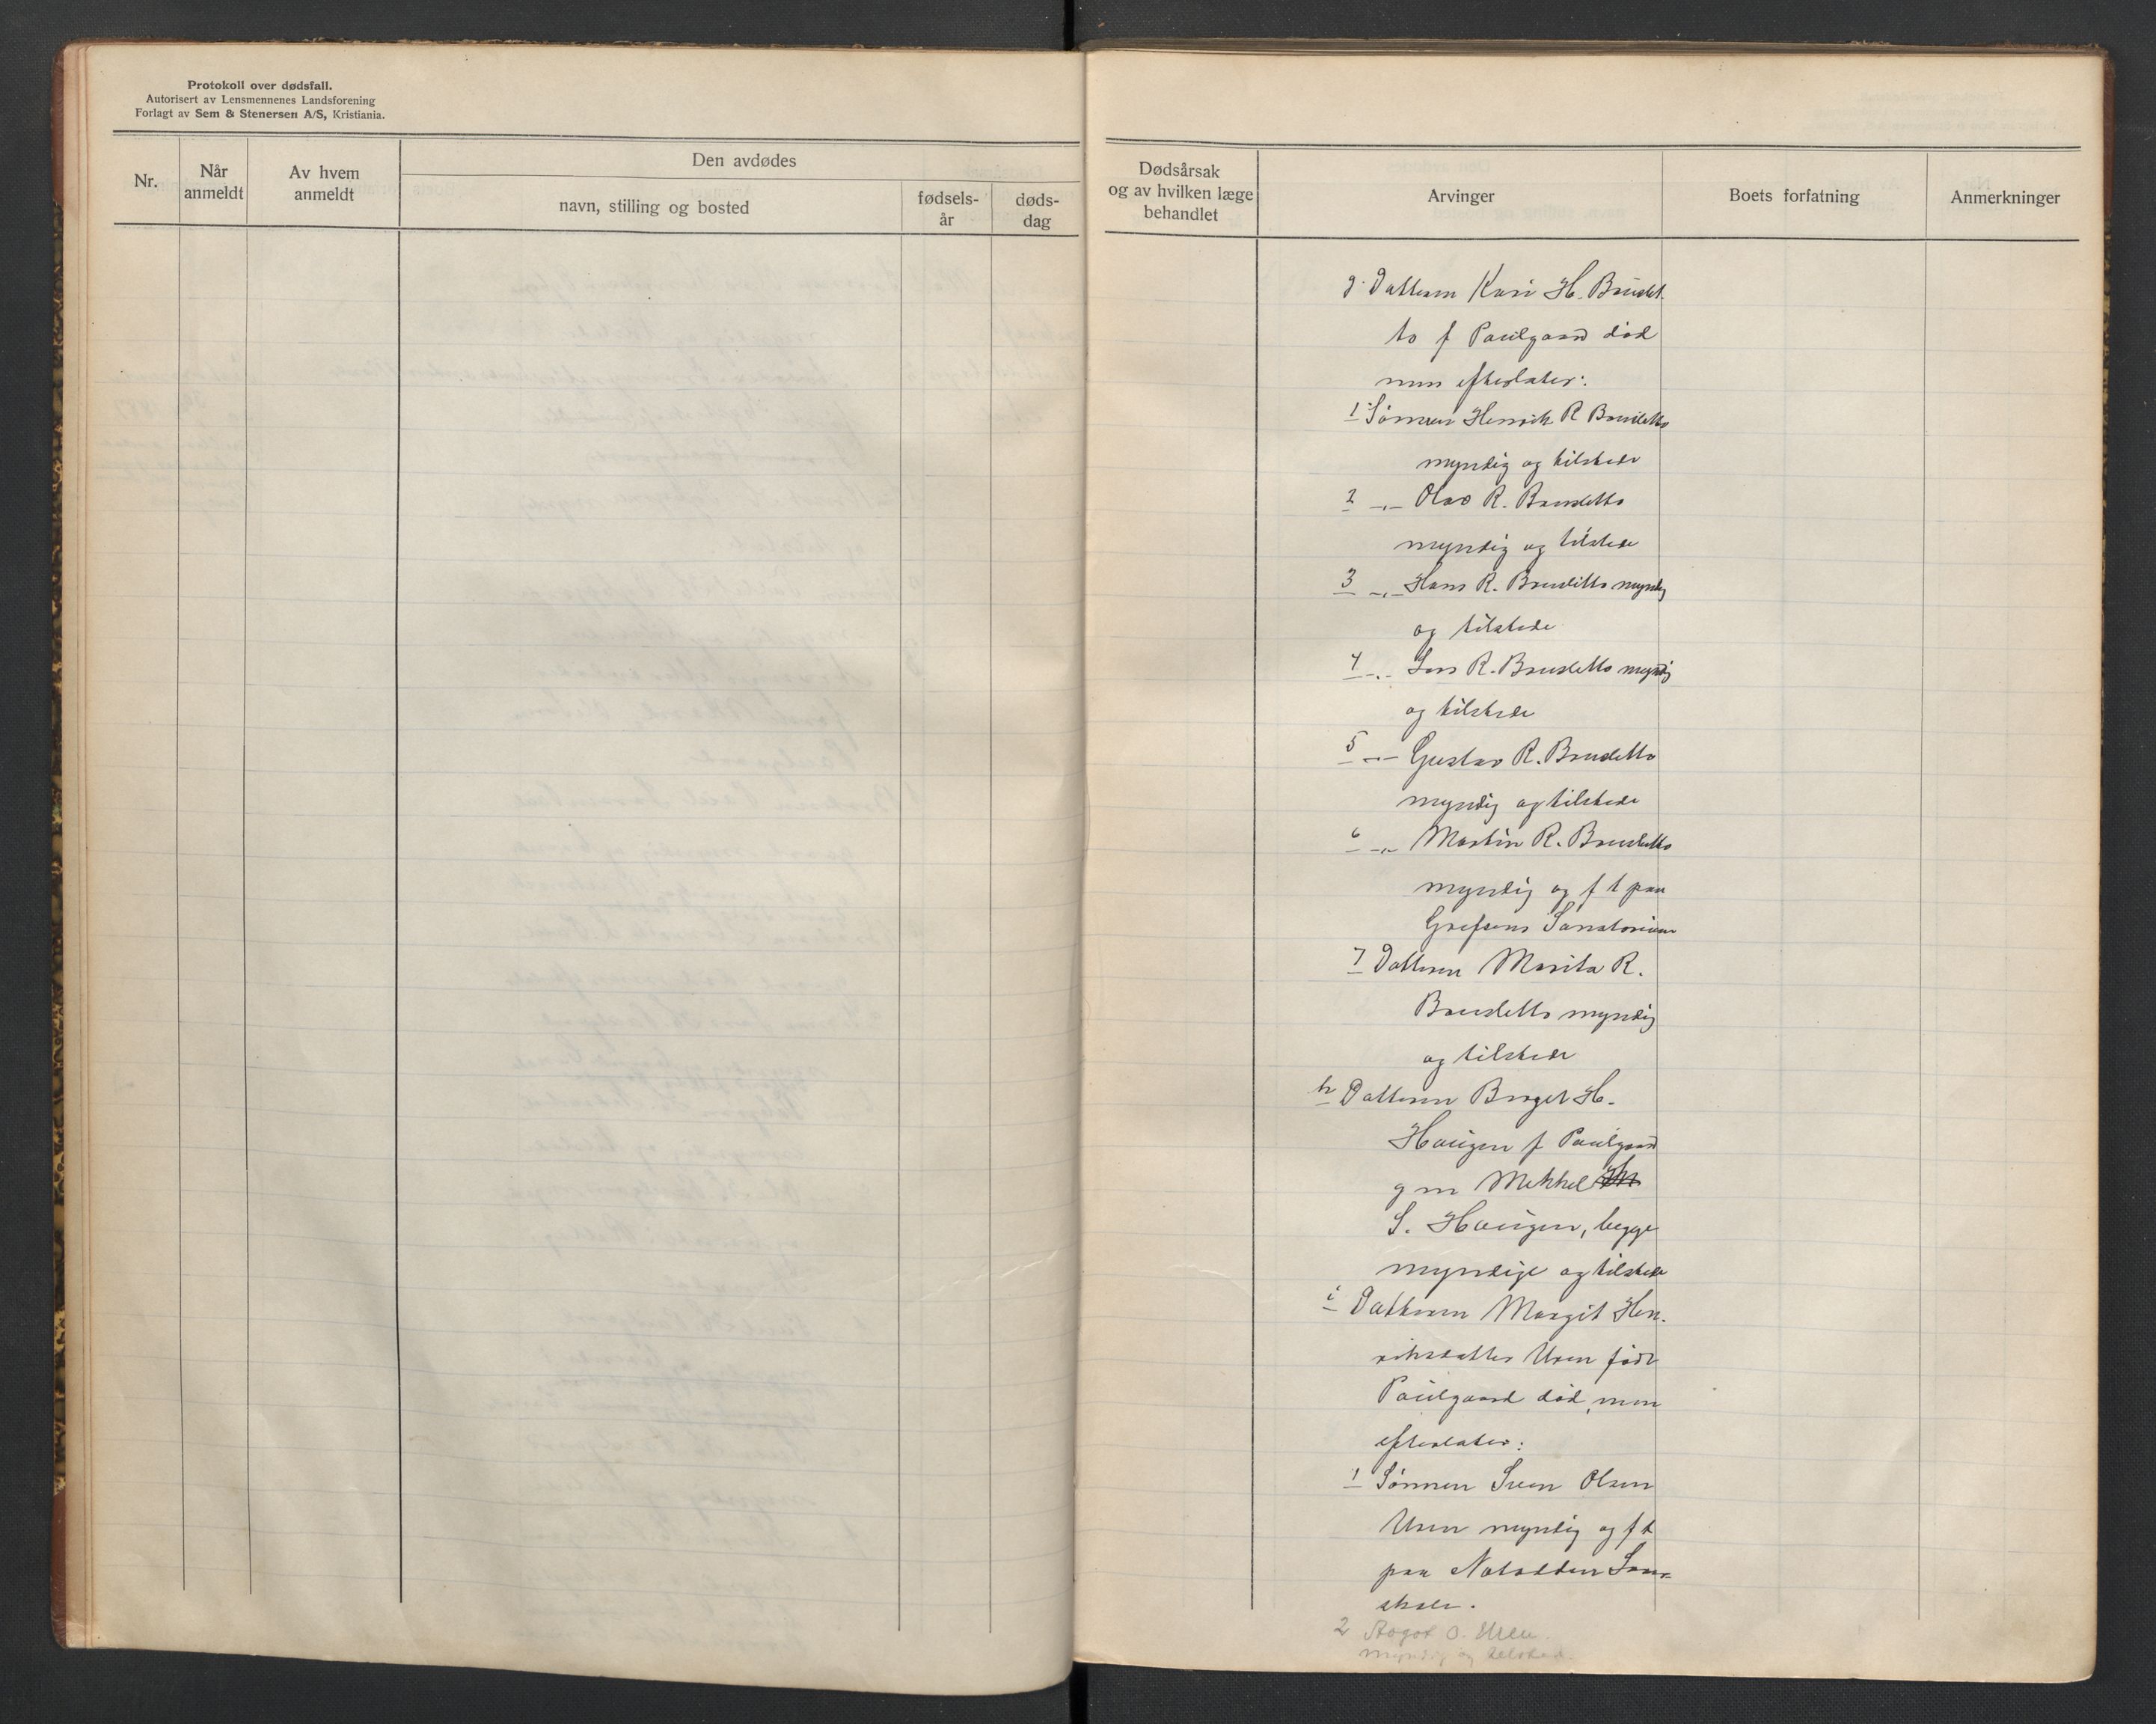 Protokoll over dødsfall.
Autorisert av Lensmennenes Landsforening
Forlagt av Sem & Stenersen A/S, Kristiania.
Nr.
Når anmeldt
Av hvem anmeldt
Den avdødes
navn, stilling og bosted
fødsels-år
døds-dag
Dødsårsak og av hvilken læge behandlet
Arvinger
Boets forfatning
Anmerkninger
g. Datteren Kari H. Brudet
to f Paulgaard død
men efterlater:
1 Sønnen Henrik R Brudetto
myndig og tilstede
2 -„- Olav R. Brudetto
myndig og tilstede
3 -„- Hans R. Brudetto myndig
og tilstede
4 -„- Lars R. Brudetto myndig
og tilstede
5 -„- Gustav R. Brudetto
myndig og tilstede
6 -„- Martin R. Brudetto
myndig og f t paa
Grefsens Sanatorium
7 Datteren Marita R.
Brudetto myndig
og tilstede
h Datteren Birget H.
Haugen f Paulgaard
g m Mekkel
S. Haugen, begge
myndige og tilstede
i Datteren Margit Hen-
riksdatter Uren født
Paulgaard død, men
efterlater:
1 Sønnen Sven Olsen
Uren myndig og f t
paa Notodden Lær-
skole.
2 Aagot O. Uren.
myndig og tilsted.